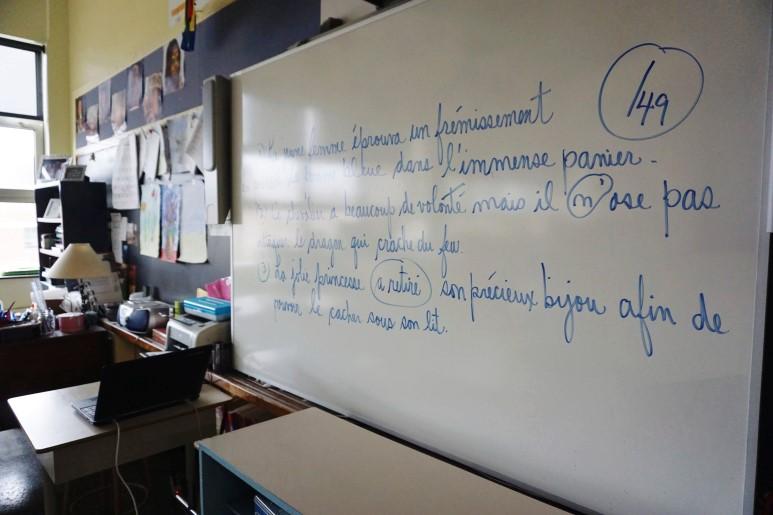 /49
femme éprouva un frémissement
dans l'immense panier.
a beaucoup de volonté mais il n'ose pas
le dragon qui crache du feu.
③ La jolie princesse a retiré son précieux bijou afin de
pouvoir le cacher sous son lit.